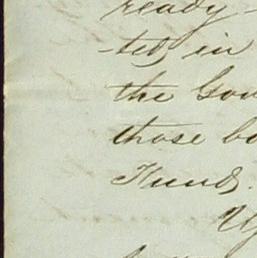 ready-
-ted, in
the Gov
those bo
Funds.